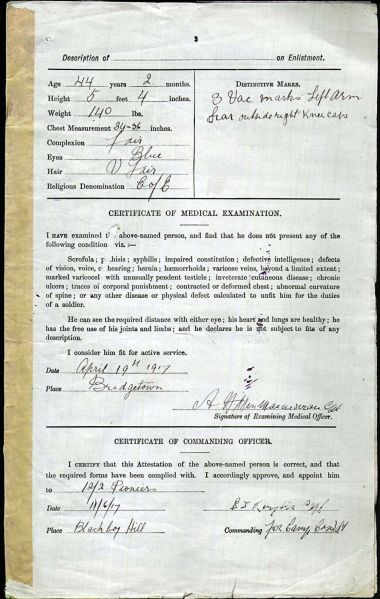 3
Description of on Enlistment.
Age 44 years 2 months.
Height 5 feet 4 inches.
Weight 140 lbs.
Chest Measurement 34-36 inches.
Complexion Fair
Eyes Blue
Hair V Fair
Religious Denomination C of E
DISTINCTIVE MARKS.
3 Vac marks Left Arm
Scar outside right Knee cap
CERTIFICATE OF MEDICAL EXAMINATION.
I HAVE examined the above-named person, and find that he does not present any of the
following condition viz.:—
Scrofula; phthisis; syphilis; impaired constitution; defective intelligence; defects
of vision, voice, or hearing; hernia; hæmorrhoids; varicose veins, beyond a limited extent;
marked varicocele with unusually pendent testicle; inveterate cutaneous disease; chronic
ulcers; traces of corporal punishment; contracted or deformed chest; abnormal curvature
of spine; or any other disease or physical defect calculated to unfit him for the duties
of a soldier.
He can see the required distance with either eye; his heart and lungs are healthy; he
has the free use of his joints and limbs; and he declares he is not subject to fits of any
description.
I consider him fit for active service.
Date April 19th 1917
Place Bridgetown
Capt
Signature of Examining Medical Officer.
CERTIFICATE OF COMMANDING OFFICER.
I CERTIFY that this Attestation of the above-named person is correct, and that
the required forms have been complied with. I accordingly approve, and appoint him
to 10/2 Pioneers
Date 11/6/17
Capt
Place Blackboy Hill Commanding for Camp